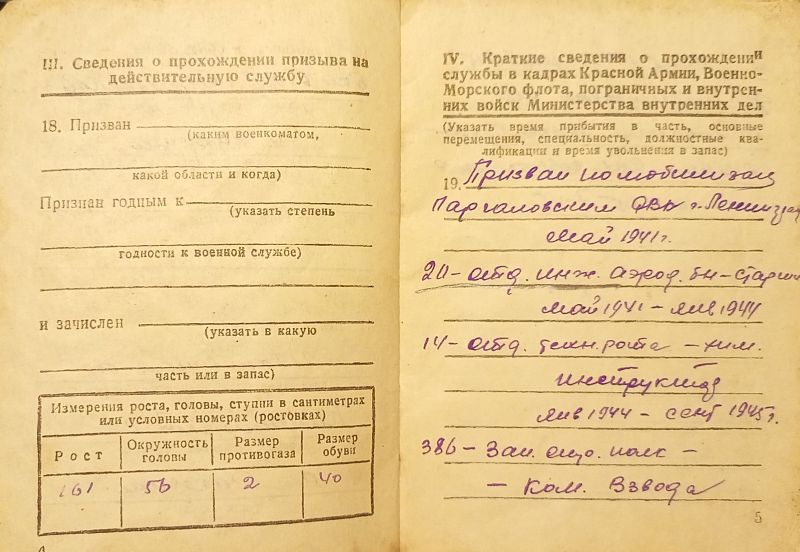 III. Сведения о прохождении призыва на
действительную службу
18. Призван
(каким военкоматом,
какой области и когда)
Признан годным к
(указать степень
годности к военной службе)
и зачислен
(указать в какую
часть или в запас)
Измерения роста, головы, ступни в сантиметрах
или условных номерах (ростовках)
Рост
Окружность
головы
Размер
противогаза
Размер
обуви
161 56 2 40
IV. Краткие сведения о прохождении
службы в кадрах Красной Армии, Военно-
Морского флота, пограничных и внутрен-
них войск Министерства внутренних дел
(Указать время прибытия в часть, основные
перемещения, специальность, должностные ква-
лификации и время увольнения в запас)
19. Призван по мобилизац
Парголовским РВК г. Ленингра
Май 1941 г.
отд. инж. аэрод. бн -
май 1941 - янв 1944
14 - отд. техн. рота - хим.
инструктор
янв 1944 - сент 1945 г.
386 - Зап. полк -
- Ком. Взвода
5